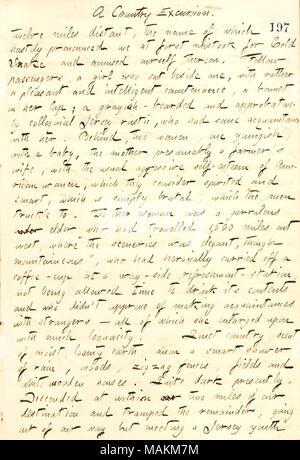 A Country Excursion.
197
twelve miles distant, the name of which
hastily pronounced we at first mistook for Cold
Snake and amused ourself thereon. Fellow
passengers, a girl who sat beside me, with rather
a pleasant and intelligent countenance, a bonnet
in her lap; a grayish-bearded and approbatively
colloquial Jersey rustic, who had some acquaintance
with her. Behind, two women one youngish
with a baby, the mother presumably a farmer's
wife, with the usual aggressive self-esteem of Am-
erican women, which they consider spirited and
smart, which is simply brutal which the men
truckle to. T'other woman was a garrulous
elder who had travelled 1500 miles out
west, where the sceneries was elegant, though
mountaineous", who had heroically carried off a
coffee-cup at a way-side refreshment-station
not being allowed time to drink its contents
and who didn't approve of making acquaintances
with strangers — all of which she enlarged upon
with much loquacity. Quiet country, scent
of moist, loamy earth, anon a smart shower
of rain, woods, zig-zag fences, fields and
white wooden houses. Quite dark presently.
Descended at within two miles of our
destination and tramped the remainder, going
out of our way but meeting a Jersey youth
alamy
Image ID: MAKM7M
www.alamy.com